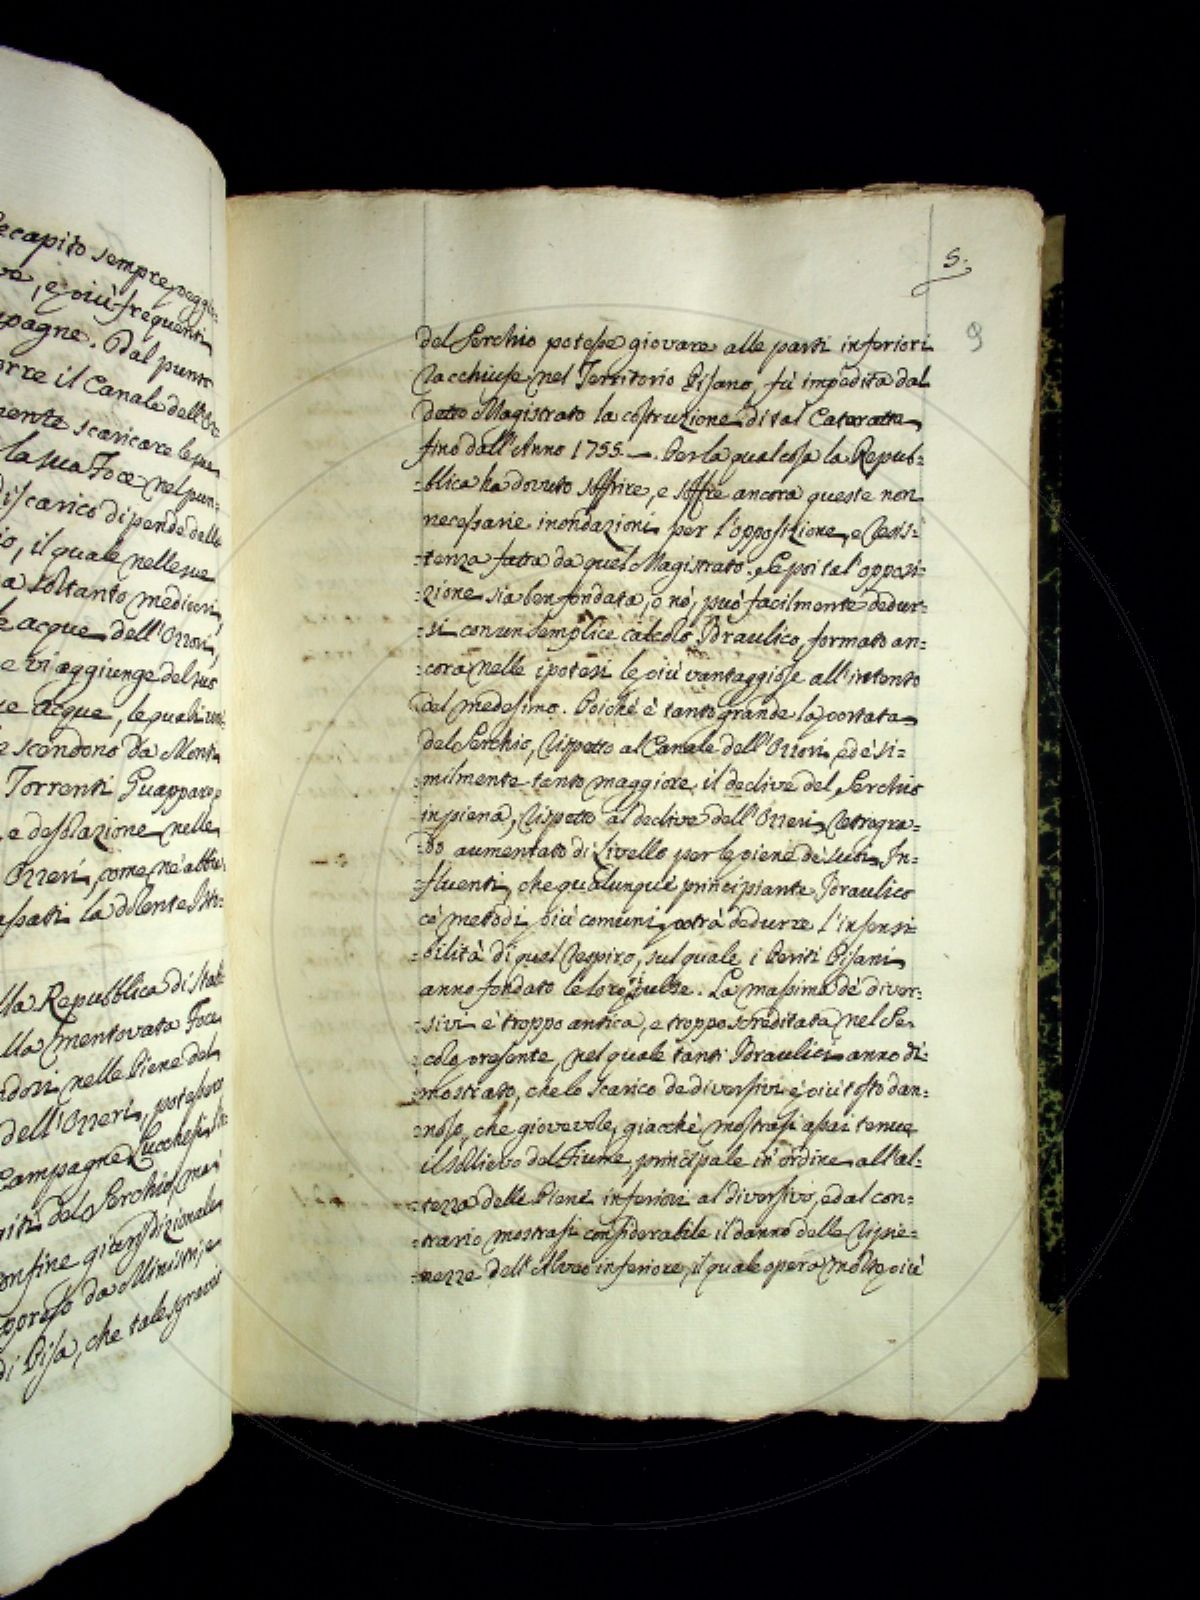 ecapito sempre peggio-
ve, e più frequenti
mpagne. Dal punto
orre il Canale dell'Oz-
mente scaricare le sue
la sua Foce nel pun-
discarico dipende dello
io, il quale nelle sue
a soltanto mediocri,
le acque dell'Ozzori,
e vi aggiunge del suo
ue acque, le quali
e scendono da Monti
Torrenti Guappero,
e desolazione nelle
Ozzeri, come ne abbia-
assati la dolente Isto-
lla Repubblica di
lla mentovata Foce
ndosi nelle Piene del
dell'Ozzeri, potessero
Campagne Lucchesi,
giti del Serchio, ma
onfine giurisdizionale
oppresso da Ministri, e
di Pisa, che tale sgravio
5.
9
del Serchio potesse giovare alle parti inferiori
racchiuse nel Territorio Pisano, fù impedita dal
detto Magistrato la costruzione di tal Cateratta
fino dall'Anno 1755.—. Per la qual cosa la Repub-
=blica ha dovuto soffrire, e soffre ancora queste non
necessarie inondazioni per l'opposizione, e resis-
=tenza fatta da quel Magistrato. Se poi tal'opposi-
=zione sia ben fondata, o nò, può facilmente dedur-
=si con un semplice calcolo Idraulico, formato an-
=cora nelle ipotesi le più vantaggiose all'intento
del medesimo. Poichè è tanto grande la portata
del Serchio, rispetto al Canale dell'Ozzori, ed è si-
=milmente tanto maggiore il declive del Serchio
in piena, rispetto al declive dell'Ozzeri retrogra-
=do aumentato di Livello per le piene de' suoi In-
=fluenti, che qualunque principiante Idraulico
co' metodi più comuni potrà dedurre l'insensi-
=bilità di quel respiro, sul quale i Periti Pisani
anno fondato le loro repulse. La massima de' diver-
=sivi è troppo antica, e troppo screditata nel Se-
colo presente, nel quale tanti Idraulici anno di-
=mostrato, che lo scarico de diversivi è piutosto dan-
=noso, che giovevole, giacchè mostrasi assai tenue
il sollievo del Fiume principale in ordine all'al-
=tezza delle Piene inferiori al diversivo, ed al con-
=trario mostrasi considerabile il danno delle ripie-
=nezze dell'Alveo inferiore, il quale opera molto più